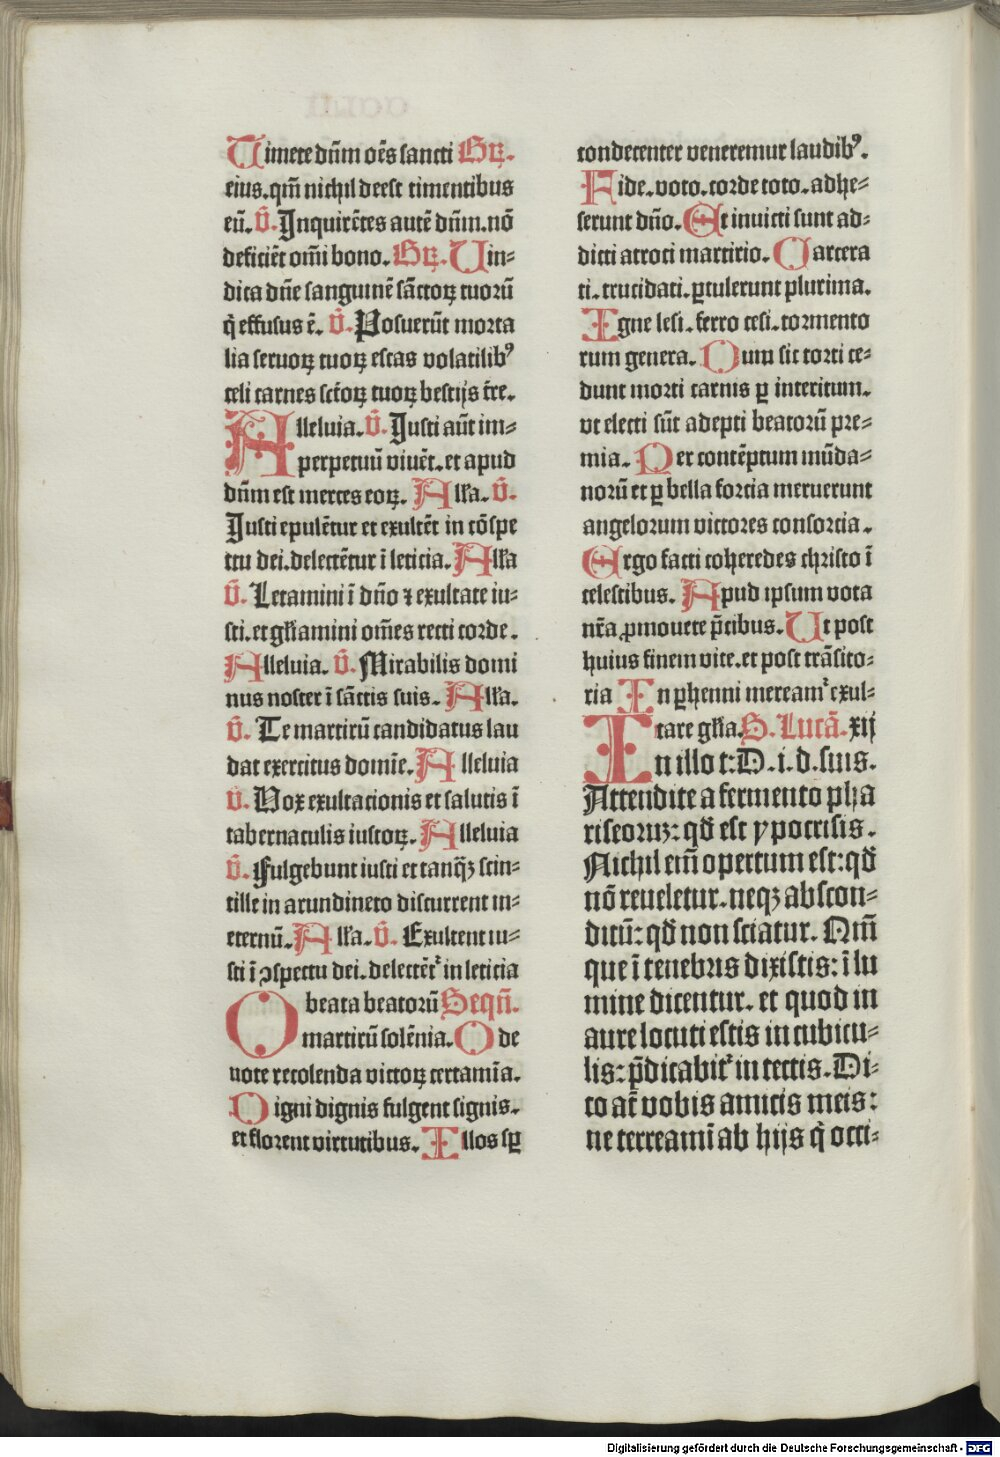 Timete dn̄m oēs sancti Gꝛ̄.
eius. qm̄ nichil deest timentibus
eū. V̄. Inquirētes autē dn̄m. nō
deficiēt om̄i bono. Gꝛ̄. Vin-
dica dn̄e sanguinē sāctoꝝ tuorū
q̇ effusus ē. V̄. Posuerūt morta
lia seruoꝝ tuoꝝ escas volatilibꝰ
celi carnes sc̄toꝝ tuoꝝ bestijs tr̄e.
Alleluia. V̄. Justi aūt im-
perpetuū viuēt. et apud
dn̄m est merces eoꝝ. All'a. V̄.
Justi epulētur et exultēt in cōspe
ctu dei. delectētur ī leticia. All'a
V̄. Letamini ī dn̄o ⁊ exultate iu-
sti. et gl'iamini om̄es recti corde.
Alleluia. V̄. Mirabilis domi
nus noster ī sāctis suis. All'a.
V̄. Te martirū candidatus lau
dat exercitus domīe. Alleluia
V̄. Vox exultacionis et salutis ī
tabernaculis iustoꝝ. Alleluia
V̄. Fulgebunt iusti et tanq̄ꝫ scin-
tille in arundineto discurrent in-
eternū. All'a. V̄. Exultent iu-
sti ī ꝯspectu dei. delectēt᷑ in leticia
O beata beatorū Seqn̄.
martirū solēnia. O de
uote recolenda victoꝝ certamīa.
Digni dignis fulgent signis.
et florent virtutibus. Illos sꝑ
condecenter veneremur laudibꝰ.
Fide. voto. corde toto. adhe-
serunt dn̄o. Et inuicti sunt ad-
dicti atroci martirio. Carcera
ti. trucidati. ꝑtulerunt plurima.
Igne lesi. ferro cesi. tormento
rum genera. Dum sic torti ce-
dunt morti carnis ꝑ interitum.
vt electi sūt adepti beatorū pre-
mia. Per contēptum mūda-
norū et ꝑ bella forcia meruerunt
angelorum victores consorcia.
Ergo facti coheredes christo ī
celestibus. Apud ipsum vota
nr̄a ꝓmouete p̄cibus. Ut post
huius finem vite. et post trāsito-
ria In ꝑhenni mereamᷣ exul-
tare gl'ia. S. Lucā. xij
In illo t: D. i. d. suis.
Attendite a fermento pha
riseorum: qd̄ est ypocrisis.
Nichil em̄ opertum est: qd̄
nō reueletur. neqꝫ abscon-
ditū: qd̄ non sciatur. Nm̄
que ī tenebris dixistis: ī lu
mine dicentur. et quod in
aure locuti estis in cubicu-
lis: p̄dicabitᷣ in tectis. Di-
co at̄ vobis amicis meis:
ne terreamī ab hijs q̇ occi-
Digitalisierung gefördert durch die Deutsche Forschungsgemeinschaft - DFG